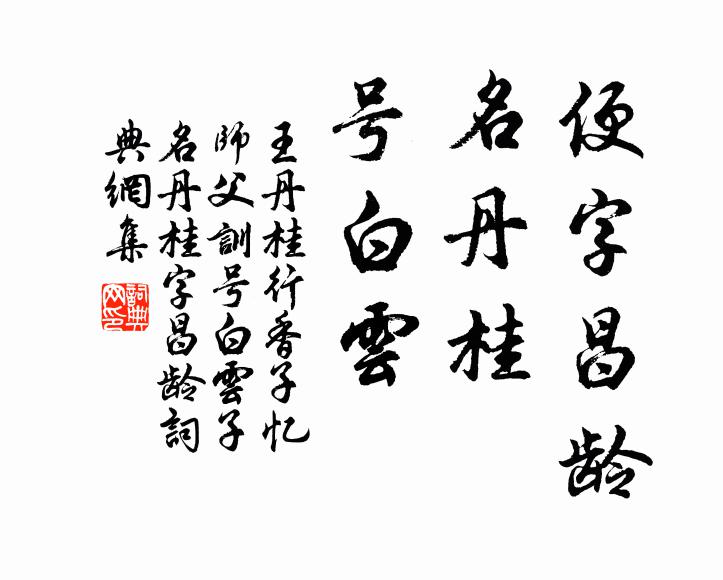 便字昌龄
名丹桂
号白雲
王丹桂行香子忆
師父訓号白雲子
名丹桂字昌龄詞
典網集
詞典
网印